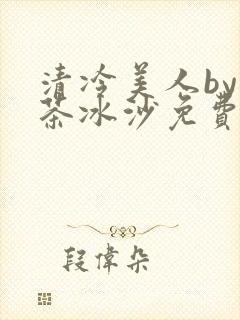 清冷美人by
茶冰沙免費
段偉朵